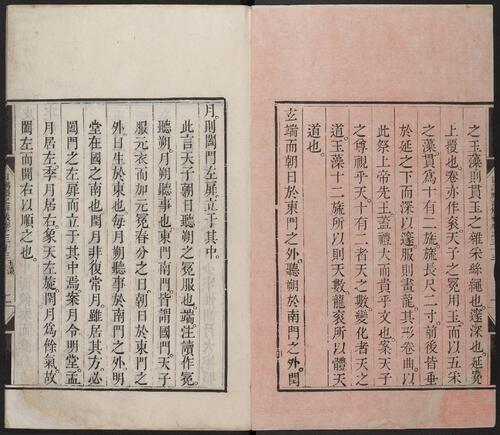 之玉藻則貫玉之雜采絲繩也。邃深也。延冕
上覆也。卷亦作袞。天子之冕用玉而以五采
之藻。貫為十有二旒。旒長尺二寸。前後皆垂
於延之下而深以邃。服則畫龍。其形卷曲。以
此祭上帝先王。蓋禮大而貴乎文也。案天子
之尊視乎天。十有二者天之數。變化者天之
道。玉藻十二旒。所以則天數。龍袞所以體天
道也。
玄端而朝日於東門之外。聽朔於南門之外。閏
月。則闔門左扉。立于其中。
此言天子朝日聽朔之冕服也。端注讀作冕。
聽朔。月朔聽事也。東門南門。皆謂國門。天子
服元衣而加元冕。春分之日。朝日於東門之
外。日生於東也。每月朔。聽事於南門之外。明
堂在國之南也。閏月非復常月。雖居其方。必
闔門之左扉而立于其中焉。案月令明堂。孟
月居左。季月居右。象天左旋。閏月為餘氣。故
闔左而開右以順之也。